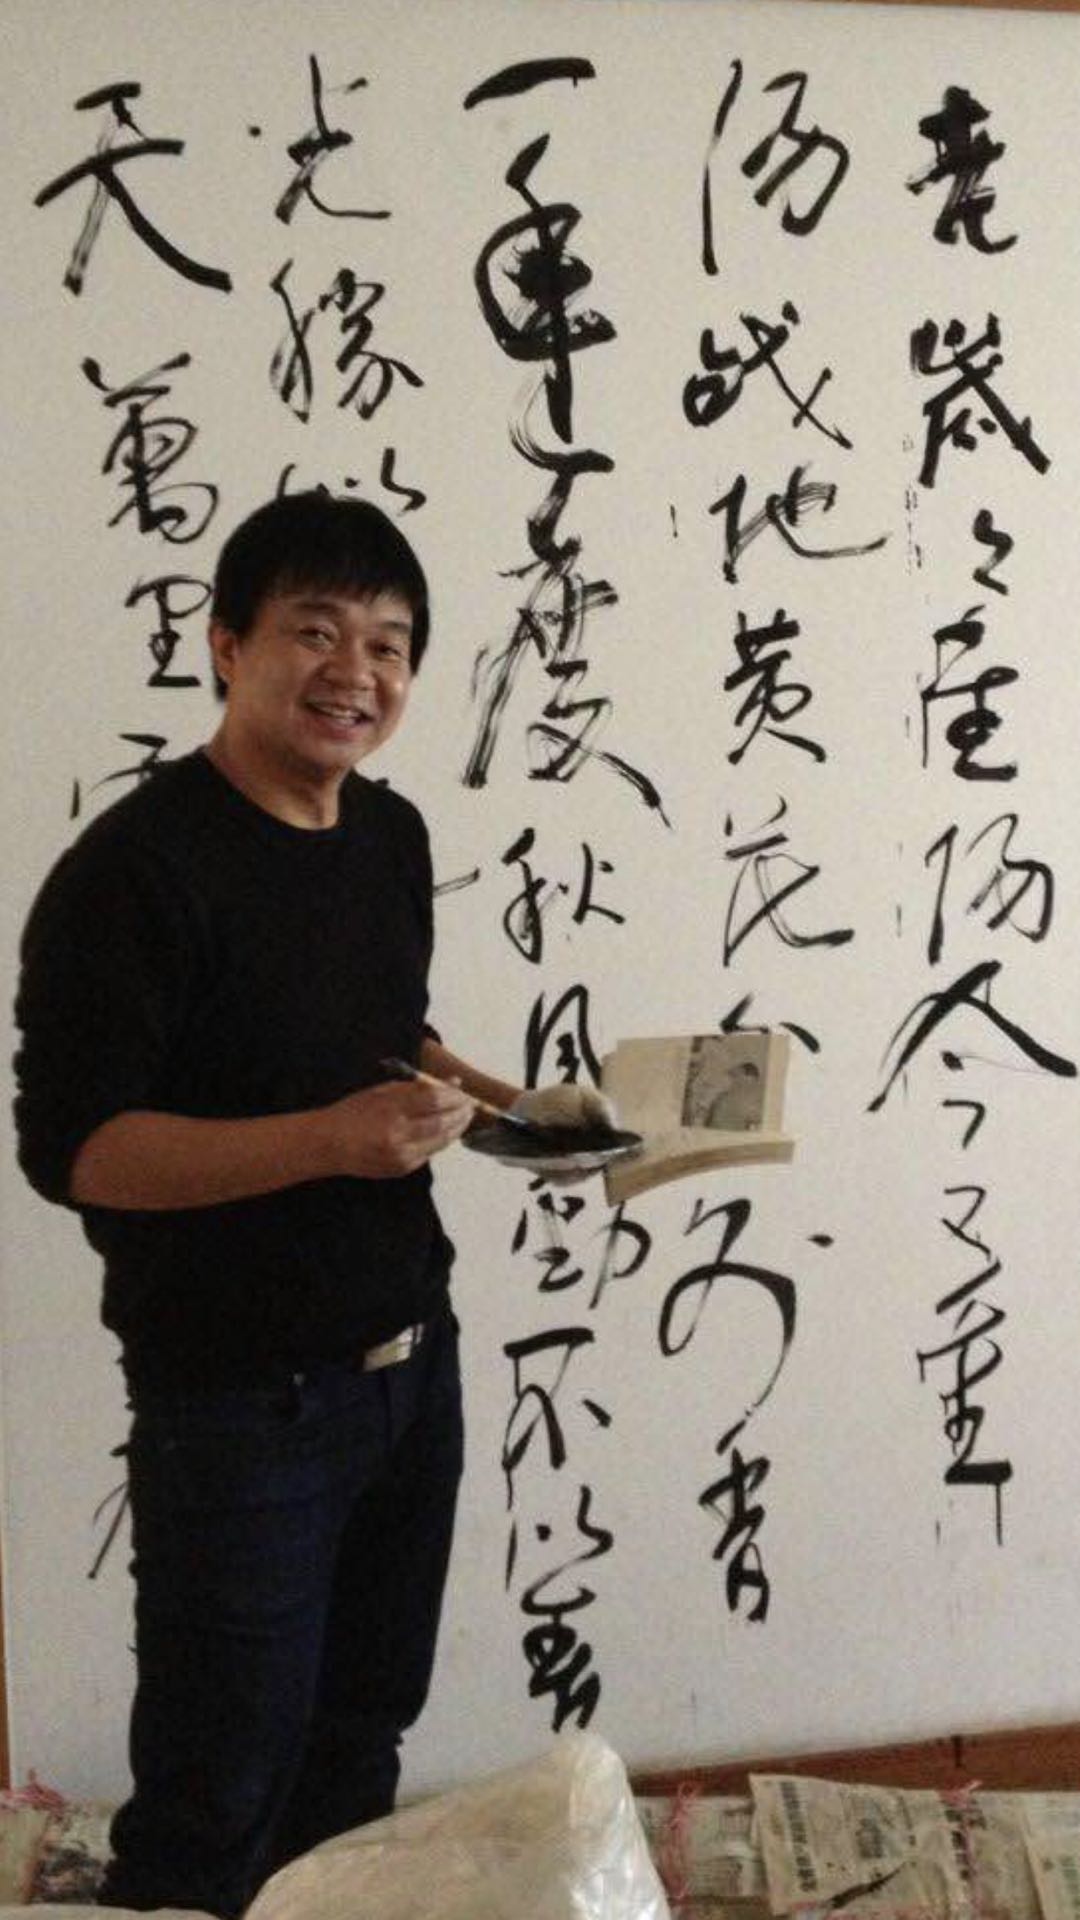 老歲々重陽今又重
陽战地黄花分外香
一年一度秋風勁不似春
光勝似
天萬里